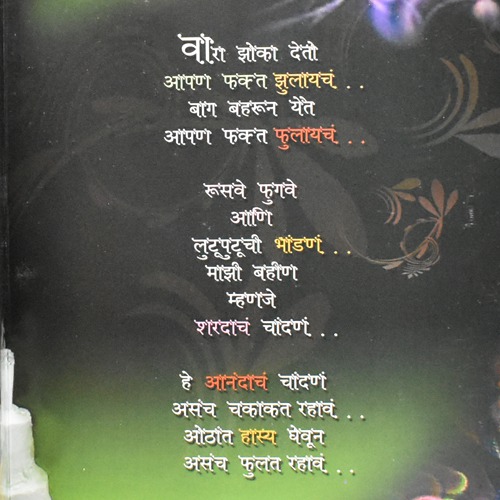 वारा झोका देतो
आपण फक्त झुलायचं . .
बाग बहरून येते
आपण फक्त फुलायचं . .
रूसवे फुगवे
आणि
लुटूपुटूची भांडणं . .
माझी बहीण
म्हणजे
शरदाचं चांदणं . .
हे आनंदाचं चांदणं
असंच चकाकत रहावं . . .
ओठांत हास्य घेवून
असंच फुलत रहावं . . .